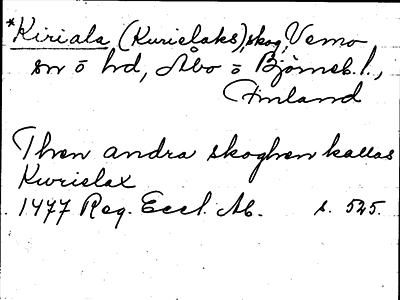 *Kiriala (Kurielaks), skog, Vemo
sn ō hd, Åbo ō Björneb. l.,
Finland
Then andra skoghen kallas
Kurielax
1477 Reg. Eccl. Ab. s. 525.